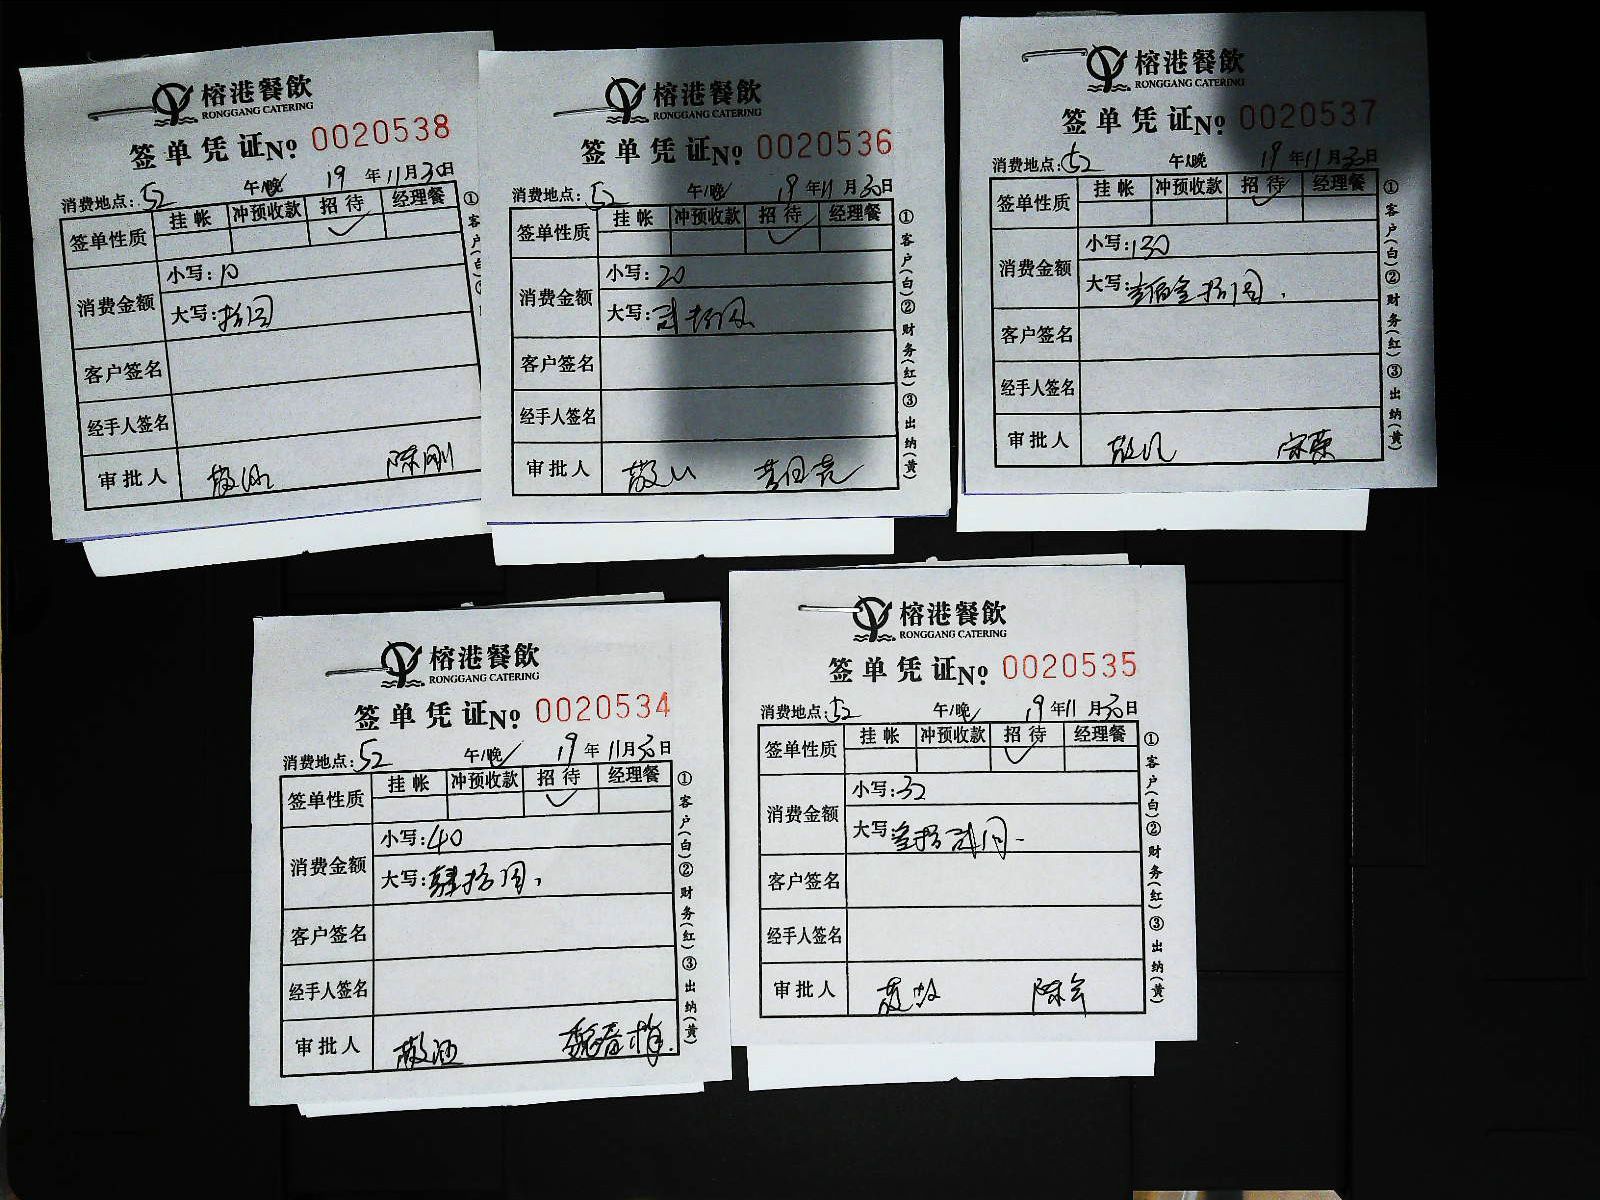 榕港餐飲
RONGGANG CATERING
签单凭证No. 0020538
消费地点:52 午/晚 19年11月30日
签单性质 挂帐 冲预收款 招待 经理餐
消费金额
小写:10
大写:拾圆
客户签名
经手人签名
审批人 陈刚
①客户(白)
榕港餐飲
RONGGANG CATERING
签单凭证No. 0020536
消费地点:52 午/晚 19年11月30日
签单性质 挂帐 冲预收款 招待 经理餐
消费金额
小写:20
大写:贰拾圆
客户签名
经手人签名
审批人
①客户(白)②财务(红)③出纳(黄)
榕港餐飲
RONGGANG CATERING
签单凭证No. 0020537
消费地点:52 午/晚 19年11月30日
签单性质 挂帐 冲预收款 招待 经理餐
消费金额
小写:130
大写:壹佰叁拾圆.
客户签名
经手人签名
审批人
①客户(白)②财务(红)③出纳(黄)
榕港餐飲
RONGGANG CATERING
签单凭证No. 0020534
消费地点:52 午/晚 19年11月30日
签单性质 挂帐 冲预收款 招待 经理餐
消费金额
小写:40
大写:肆拾圆,
客户签名
经手人签名
审批人 魏春梅.
①客户(白)②财务(红)③出纳(黄)
榕港餐飲
RONGGANG CATERING
签单凭证No. 0020535
消费地点:52 午/晚 19年11月30日
签单性质 挂帐 冲预收款 招待 经理餐
消费金额
小写:32
大写 叁拾贰圆-
客户签名
经手人签名
审批人
①客户(白)②财务(红)③出纳(黄)